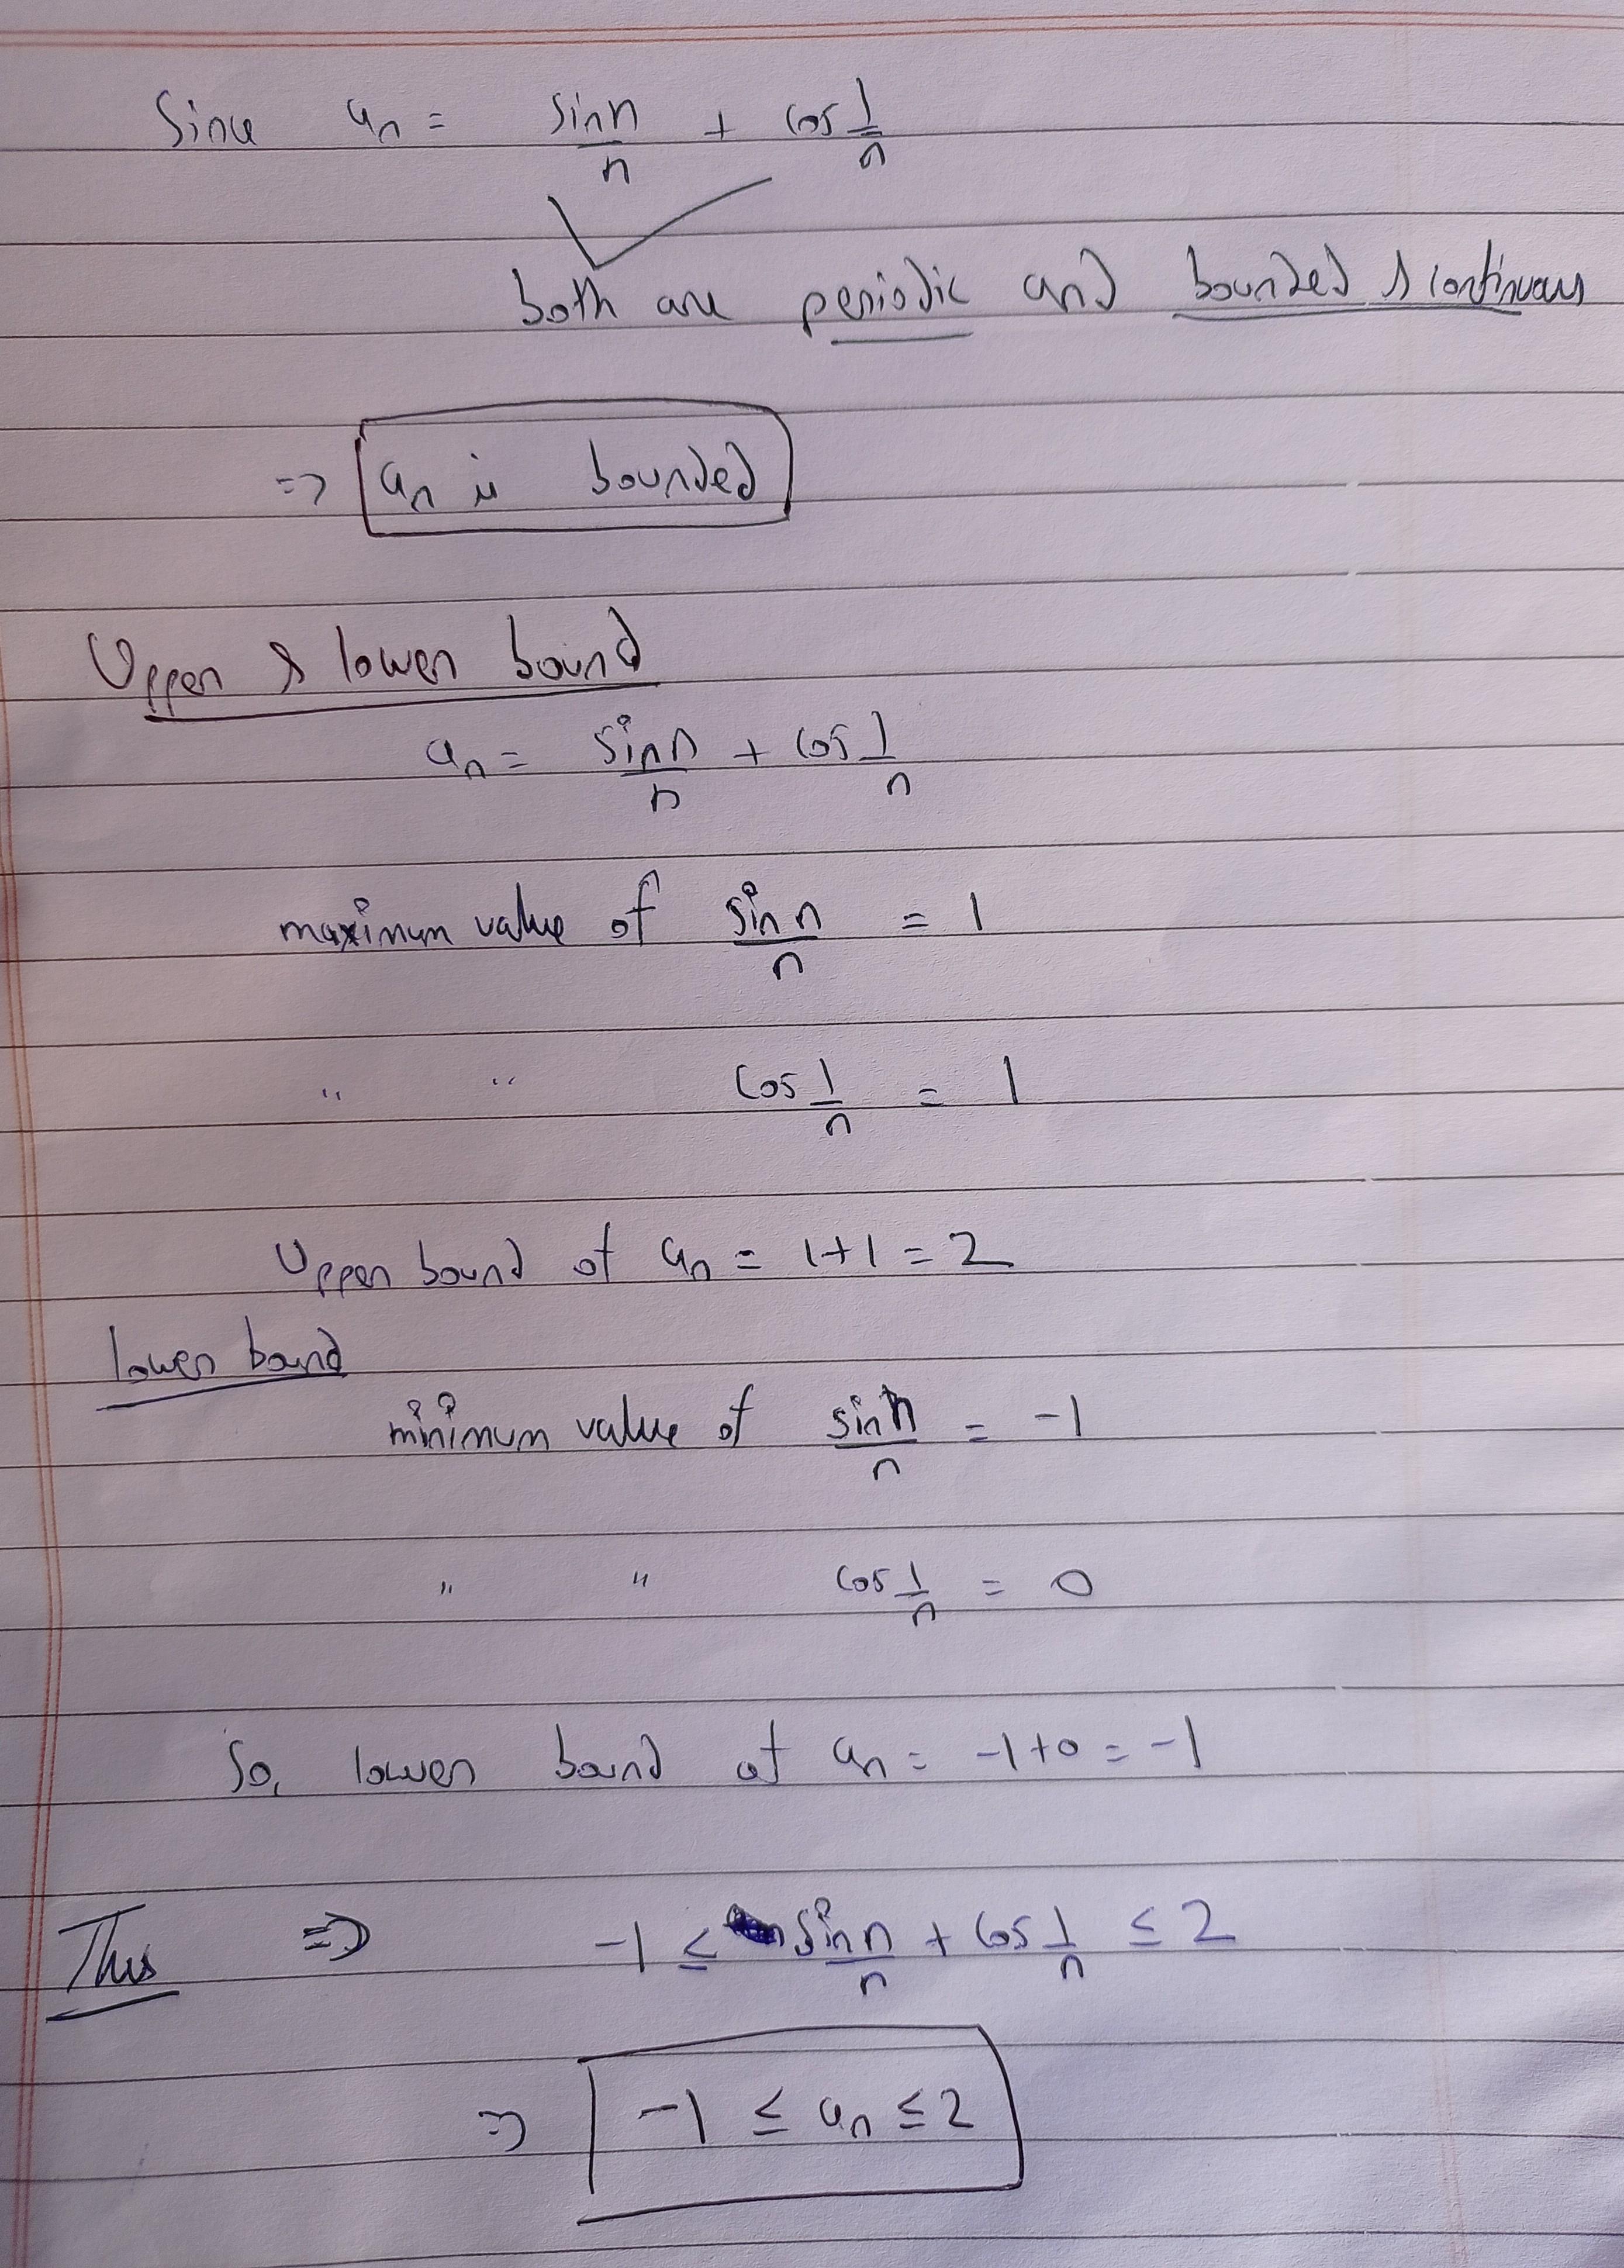 Since an = sin n/n + cos 1/n
both are periodic and bounded & continuous
=> an is bounded
Upper & lower bound
an = sin n/n + cos 1/n
maximum value of sin n/n = 1
" " cos 1/n = 1
Upper bound of an = 1+1 = 2
lower bound
minimum value of sin n/n = -1
" " cos 1/n = 0
So, lower bound of an = -1+0 = -1
Thus => -1 ≤ sin n/n + cos 1/n ≤ 2
=> -1 ≤ an ≤ 2